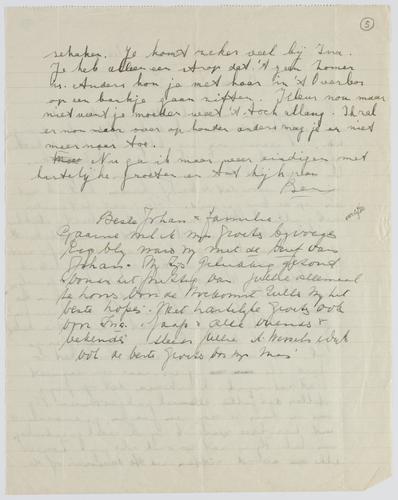 5
schaken. Je komt zeker veel bij Ina.
Je heb alleen een strop dat 't geen zomer
is. Anders kon je met haar in 't Overbos
op een bankje gaan zitten. Kleur nou maar
niet want je moeder weet 't toch allang. Ik zal
er nou over op houden anders mag je er niet
meer naar toe.
Nu ga ik maar weer eindigen met
hartelijke groeten en tot kijk van
Ben
Beste Johan & familie.
Gaarne wil ik mijn groeten bijvoegen
blij waren wij met de brief van
Johan. Wij zijn gelukkig gezond
van jullie allemaal
te horen. Voor de toekomst zullen wij het
beste hopen. Met hartelijke groeten ook
voor Ina. Jaap & alle vrienden &
bekende
ook de beste groeten van mijn man